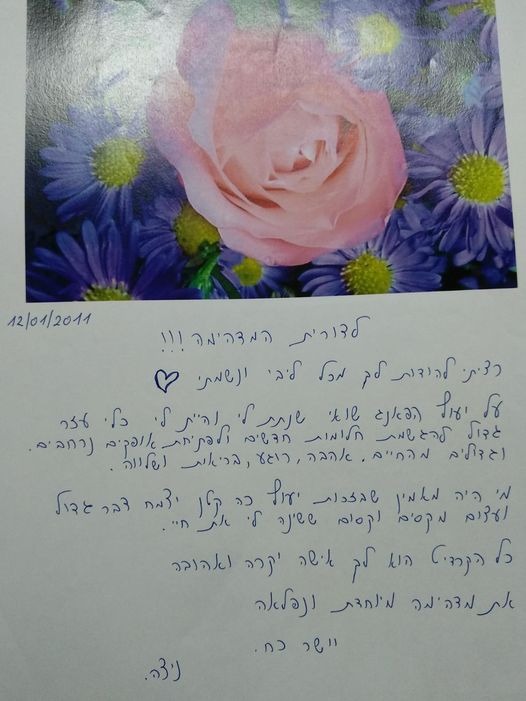 12/01/2011
לדורית המדהימה!!!
רציתי להודות לך מכל ליבי ונשמתי ♡
על יעוץ הפאנג שואי שנתת לי והיית לי כלי עזר
גדול להגשמת חלומות חדשים ולפתיחת אופקים נרחבים.
וגדולים מהחיים. אהבה, רוגע, בריאות ושלווה.
מי היה מאמין שבזכות יעוץ כה קטן יצמח דבר גדול
ועצום מקסים וקסום ששינה לי את חיי.
כל הקרדיט הוא לך אישה יקרה ואהובה
את מדהימה מיוחדת ונפלאה
יישר כח.
ניצה.